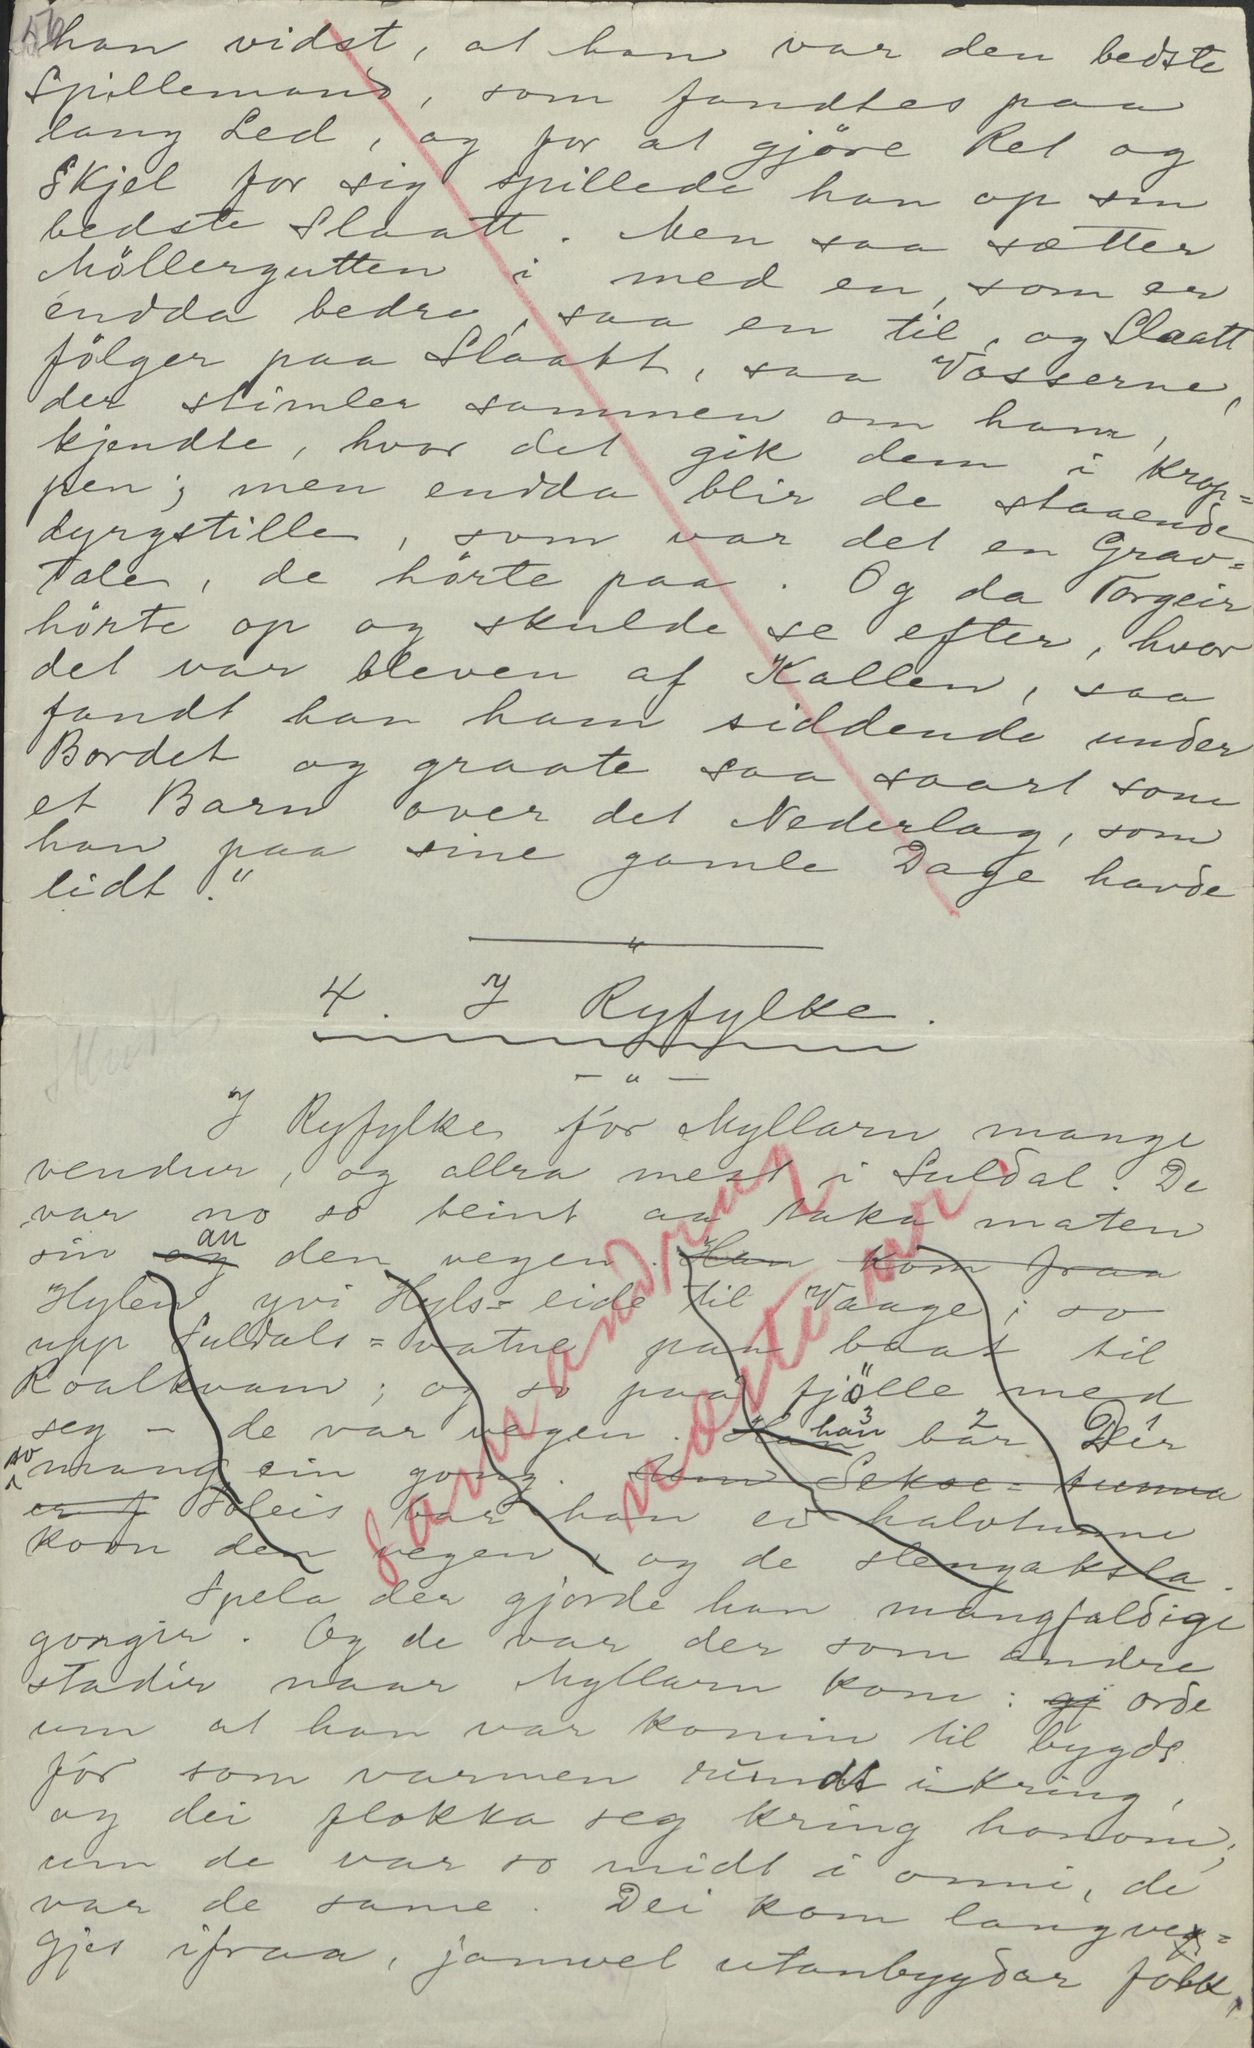 han vidst, at han var den bedste
Spillemand, som fandtes paa
lang Led, og for at gjöre Ret og
Skjel for sig spillede han op sin
bedste Slaatt. Men saa sætter
Möllergutten i med en, som er
endda bedre, saa en til, og Slaatt
fölger paa Slaatt, saa Vosserne,
der stimler sammen om ham,
kjendte, hvor det gik dem i Krop=
pen; men endda blir de staaende
dyrgstille, som var det en Grav=
tale, de hörte paa. Og da Torgeir
hörte op og skulde se efter, hvor
det var bleven af Kallen, saa
fandt han ham siddende under
Bordet og graate saa saart som
et Barn over det Nederlag, som
han paa sine gamle Dage havde
lidt."
4. I Ryfylke.
I Ryfylke fór Myllarn mange
vendur, og allra mest i Suldal. De
var no so beint aa taka maten
sin og au den vegen. Han kom fraa
Hylen yvi Hyls=eide til Vaage; so
upp Suldals=vatne paa baat til
Roalkvam; og so paa fjölle med
seg – de var vegen. Han han 3 bar 2 Dér 1
so mang ein gong. Sekse=tunna
Soleis bar han ei halvtunne
korn den vegen, og de stengaksla.
fam andring
notinur
Spela der gjorde han mangfaldige
gongir. Og de var der som andre
stadir naar Myllarn kom: gj orde
um at han var komin til bygds
fór som varmen rundt ikring,
og dei flokka seg kring honom;
um de var so midt i onni, de
var de same. Dei kom langve=
gjes ifraa, jamvel utanbygdar folk,